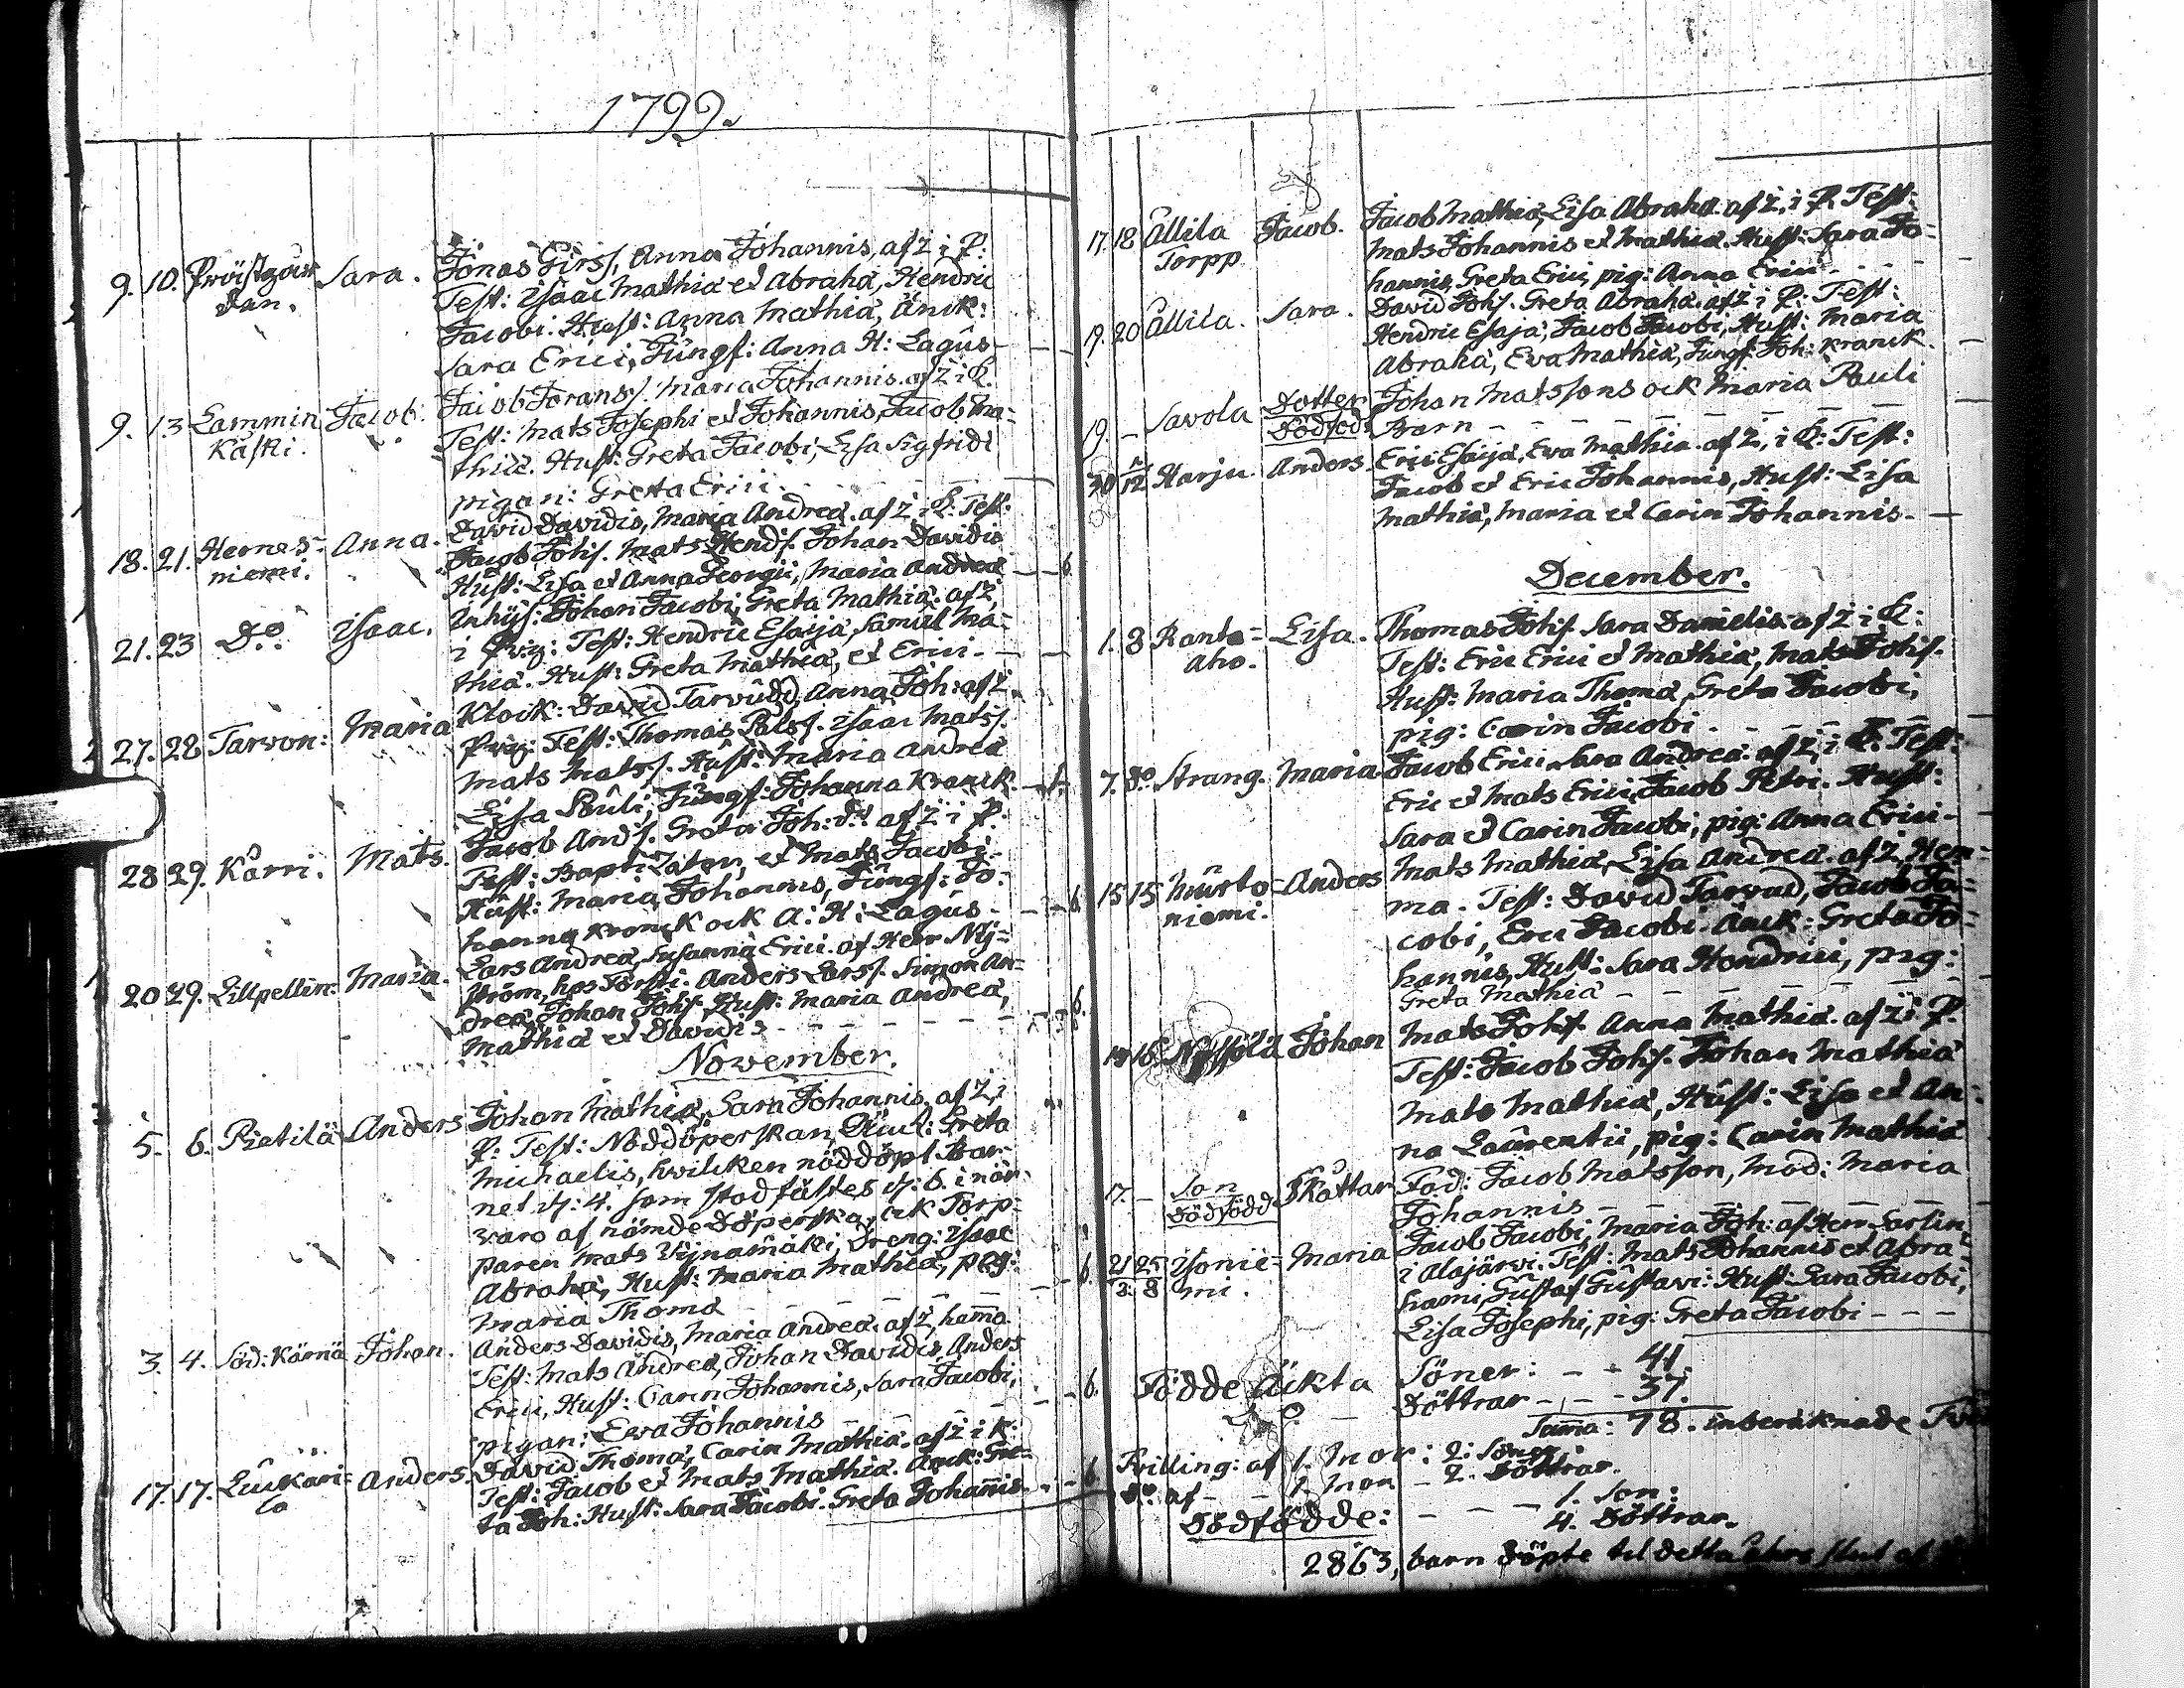 1799.
9. 10. Pröstgår Sara. Jonas Girss. Anna Johannis, af 2 i P:
dan. Test: Isaac Mathiæ et Abrahæ, Hendric
Jacobi. Hust: Anna Mathiæ, Änck:
Sara Erici, Jungf: Anna H: Lagus
9. 13 Lammin Jacob. Jacob Joranss. Maria Johannis. af 2 i K.
Käski. Test: Mats Josephi et Johannis, Jacob Ma=
thiæ. Hust: Greta Jacobi, Lisa Sigfridi
pigan: Greta Erici
18. 21. Hernes= Anna. David Davidis, Maria Andreæ. af 2 i K: Test:
niemi. Jacob Johs. Mats Hends. Johan Davidis
Hust: Lisa et Anna Georgii, Maria Andreæ 6
21. 23 Do: Isaac. Inhys: Johan Jacobi, Greta Mathiæ. af 2,
i Prig: Test: Hendric Esaiæ, Samuel Ma=
thiæ. Hust: Greta Mathiæ, et Erici
27. 28 Tarvon: Maria Klock: David Tarvudd, Anna Joh: af 2.
Prig: Test: Thomas Pålss. Isaac Matss.
Mats Matss. Hust: Maria Andreæ
Lisa Pauli, Jungf: Johanna Kranck.
28 29. Kårri. Mats. Jacob Ands. Greta Joh: dr. af 2 i P.
Test: Mats Jacobi
Hust: Maria Johannis, Jungf: Jo:
hanna Kranck ock A: H: Lagus 6
20 29. Lillpellin: Maria. Lars Andreæ, Susanna Erici. af Herr Ny=
ström, hos Torsti. Anders Larss. Simon An=
dreæ Johan Johs. Hust: Maria Andreæ,
Mathiæ et Davidis 6.
November.
5. 6. Pietilä Anders Johan Mathiæ, Sara Johannis, af 2, i
P: Test: Nöddöperskan, Greta
Michaelis, hvilcken nöddöpt Bar=
net d: 4. som stadfästes d: 6. i när=
varo af nämde Döperska, ock Torp=
paren Mats Vijnamäki, Dreng: Isaac
Abrahæ, Hust: Maria Mathiæ, pig: 6.
Maria Thomæ
3. 4. Söd: Kärnä Johan. Anders Davidis, Maria Andreæ. af 2, hema
Test: Mats Andreæ, Johan Davidis, Anders
Erici, Hust: Carin Johannis, Sara Jacobi, 6.
pigan: Eva Johannis
17. 17. Luckari= Anders. David Thomæ, Carin Mathiæ. af 2 i K:
la Test: Jacob et Mats Mathiæ. Änck: Gre=
ta Joh: Hust: Sara Jacobi. Greta Johannis. 6
17. 18 Allila Jacob. Jacob Mathiæ, Lisa Abrahæ. af 2, i P. Test:
Torpp Mats Johannis et Mathiæ. Hust: Sara Jo=
hannis, Greta Erici, pig: Anna Erici
19. 20 Allila. Sara. David Johs. Greta Abrahæ. af 2 i P: Test:
Hendric Esajæ, Jacob Jacobi, Hust: Maria
Abrahæ, Eva Mathiæ, Jungf: Joh: Kranck.
19. – Savola Dotter Johan Matssons ock Maria Pauli
Dödföd: Barn
30 1/12 Harju. Anders. Eric Esaijæ, Eva Mathiæ. af 2, i K: Test:
Jacob et Eric Johannis, Hust: Lisa
Mathiæ, Maria et Carin Johannis.
December.
1. 8 Ranta= Lisa. Thomas Johs. Sara Danielis. af 2 i K:
aho. Test: Eric Erici et Mathiæ, Mats Johs.
Hust: Maria Thomæ, Greta Jacobi,
pig: Carin Jacobi
7. do Strang. Maria Jacob Erici, Sara Andreæ. af 2, i K. Test:
Eric et Mats Erici, Jacob Petri. Hust:
Sara et Carin Jacobi, pig: Anna Erici
15 15 Murto= Anders Mats Mathiæ, Lisa Andreæ. af 2. Hem=
niemi. ma. Test: David Tarvud, Jacob Ja=
cobi, Eric Jacobi. Änck: Greta Jo=
hannis, Hust: Sara Hendrici, pig:
Greta Mathiæ
16 Johan Mats Johs. Anna Mathiæ. af 2 i P.
Test: Jacob Johs. Johan Mathiæ
Mats Mathiæ, Hust: Lisa et An=
na Laurentii, pig: Carin Mathiæ
17. – Son Skattar Fad: Jacob Matsson, Mod: Maria
Dödfödd Johannis
21 25 Isonie= Maria Jacob Jacobi, Maria Joh: af Herr Sarlin
3. 8 mi. i Alajärvi. Test: Mats Johannis et Abra=
hami, Gustaf Gustavi: Hust: Sara Jacobi,
Lisa Josephi, pig: Greta Jacobi
Födde Äckta Söner: 41.
Döttrar 37.
Suma: 78. inberäknade
Tvilling: af 1. Mor: 2: Söner.
do: af 1. Mor 2. Döttrar.
1. Son:
Dödfödde: 4. Döttrar.
2863, barn döpte til detta åhrs slut af